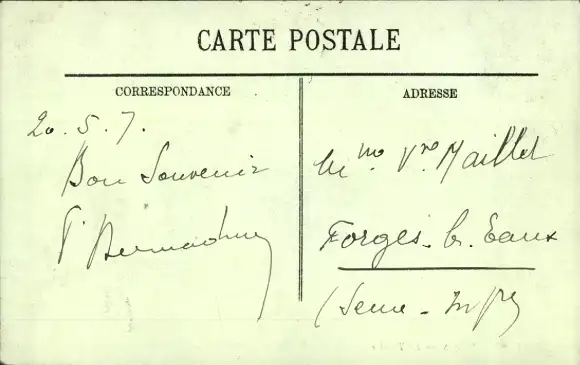 CARTE POSTALE
CORRESPONDANCE
ADRESSE
20.5.7.
Bon Souvenir
Mme Vve Maillet
Forges-l.-Eaux
(Seine-Infre)